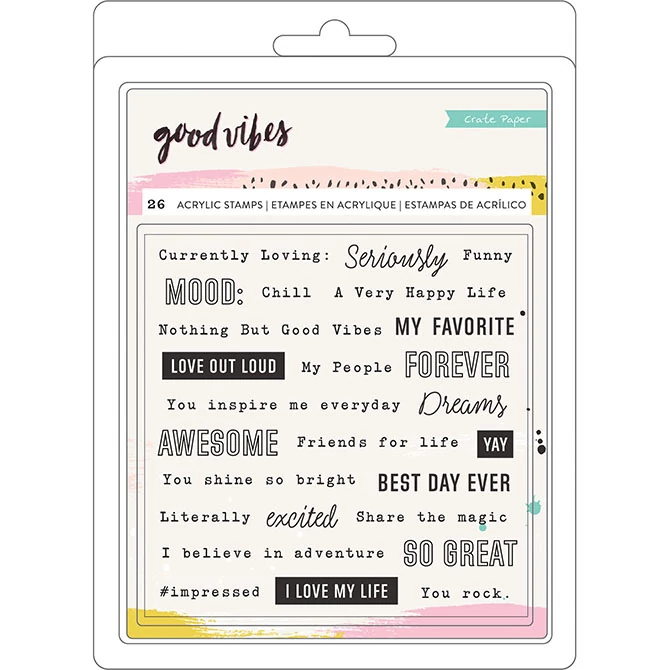 good vibes
Crate Paper
26 ACRYLIC STAMPS | ETAMPES EN ACRYLIQUE | ESTAMPAS DE ACRÍLICO
Currently Loving: Seriously Funny
MOOD: Chill A Very Happy Life
Nothing But Good Vibes MY FAVORITE
LOVE OUT LOUD My People FOREVER
You inspire me everyday Dreams
AWESOME Friends for life YAY
You shine so bright BEST DAY EVER
Literally excited Share the magic
I believe in adventure SO GREAT
#impressed I LOVE MY LIFE You rock.